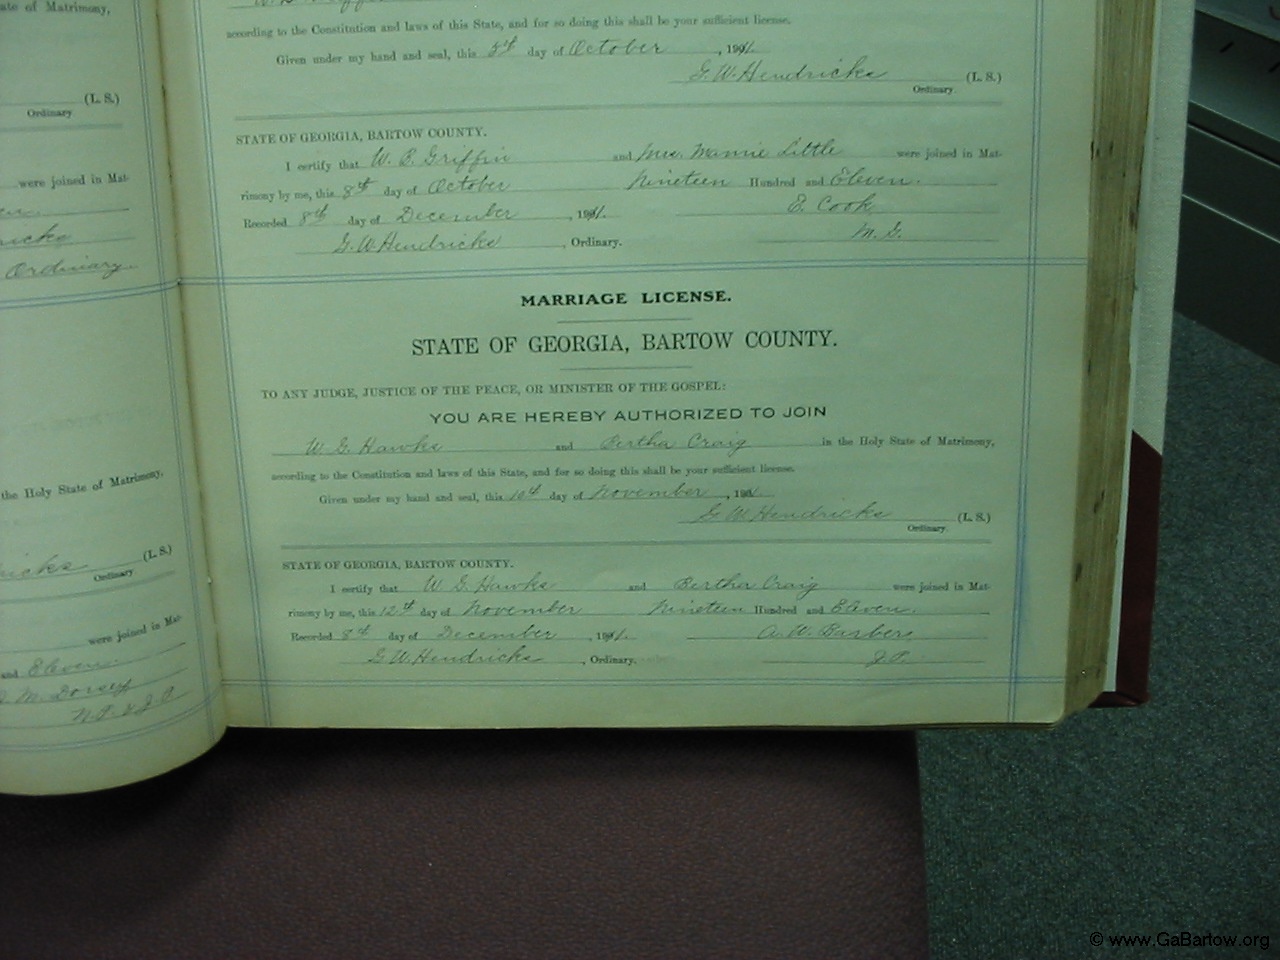 ate of Matrimony,
(L. S.)
Ordinary
were joined in Mat-
Ordinary.
the Holy State of Matrimony,
(L. S.)
Ordinary
were joined in Mat-
and Eleven.
M. Dorsey
N. P. & J. P.
according to the Constitution and laws of this State, and for so doing this shall be your sufficient license.
Given under my hand and seal, this 8th day of October, 1911.
G. W. Hendricks (L. S.)
Ordinary.
STATE OF GEORGIA, BARTOW COUNTY.
I certify that W. B. Griffin and Mrs. Mamie Little were joined in Mat-
rimony by me, this 8th day of October Nineteen Hundred and Eleven.
Recorded 8th day of December, 1911. E. Cook
G. W. Hendricks, Ordinary. M. G.
MARRIAGE LICENSE.
STATE OF GEORGIA, BARTOW COUNTY.
TO ANY JUDGE, JUSTICE OF THE PEACE, OR MINISTER OF THE GOSPEL:
YOU ARE HEREBY AUTHORIZED TO JOIN
W. G. Hawks and Bertha Craig in the Holy State of Matrimony,
according to the Constitution and laws of this State, and for so doing this shall be your sufficient license.
Given under my hand and seal, this 10th day of November, 1911.
G. W. Hendricks (L. S.)
Ordinary.
STATE OF GEORGIA, BARTOW COUNTY.
I certify that W. G. Hawks and Bertha Craig were joined in Mat-
rimony by me, this 12th day of November Nineteen Hundred and Eleven.
Recorded 8th day of December, 1911. A. W. Barbers
G. W. Hendricks, Ordinary. J. P.
© www.GaBartow.org